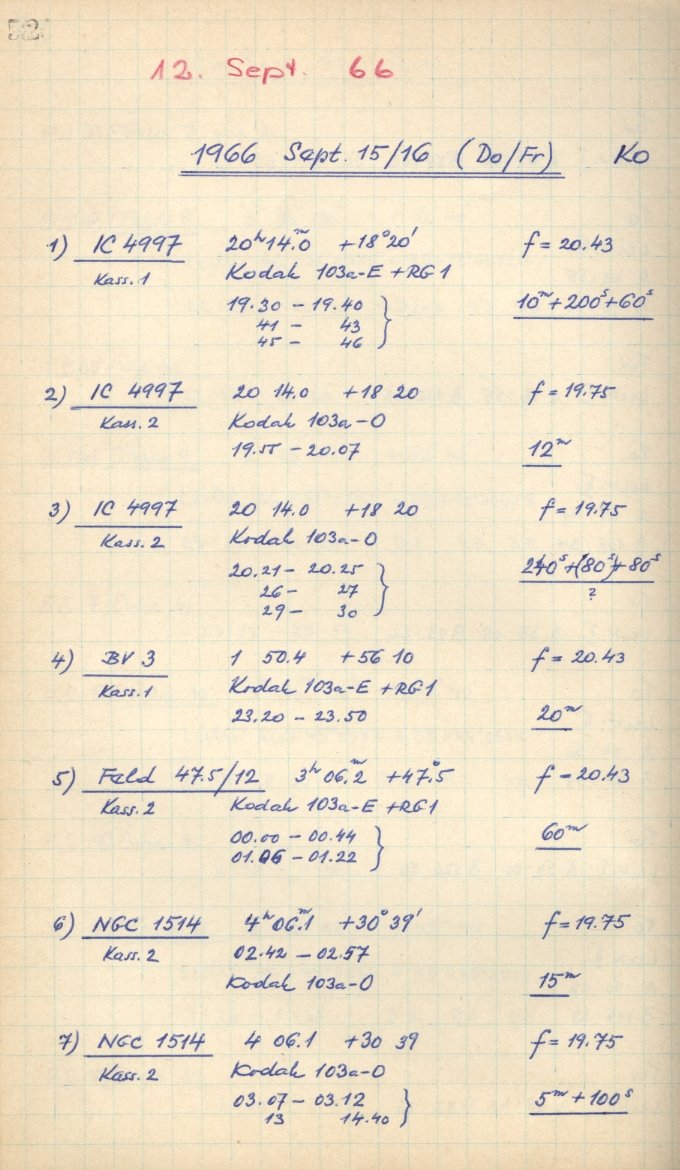 52
12. Sept. 66
1966 Sept. 15/16 (Do/Fr) Ko
1) IC 4997 20ʰ14ᵐ.0 +18°20' f = 20.43
Kass. 1 Kodak 103a-E + RG1
19.30 – 19.40 } 10ᵐ+200ˢ+60ˢ
41 – 43
45 – 46
2) IC 4997 20 14.0 +18 20 f = 19.75
Kass. 2 Kodak 103a-O
19.55 – 20.07 12ᵐ
3) IC 4997 20 14.0 +18 20 f = 19.75
Kass. 2 Kodak 103a-O
20.21 – 20.25 } 240ˢ+(80ˢ)+80ˢ
26 – 27 ?
29 – 30
4) BV 3 1 50.4 +56 10 f = 20.43
Kass. 1 Kodak 103a-E + RG1
23.20 – 23.50 20ᵐ
5) Feld 47.5/12 3ʰ06ᵐ.2 +47°.5 f – 20.43
Kass. 2 Kodak 103a-E + RG1
00.00 – 00.44 } 60ᵐ
01.06 – 01.22
6) NGC 1514 4ʰ06ᵐ.1 +30°39' f = 19.75
Kass. 2 02.42 – 02.57
Kodak 103a-O 15ᵐ
7) NGC 1514 4 06.1 +30 39 f = 19.75
Kass. 2 Kodak 103a-O
03.07 – 03.12 } 5ᵐ+100ˢ
13 14.40